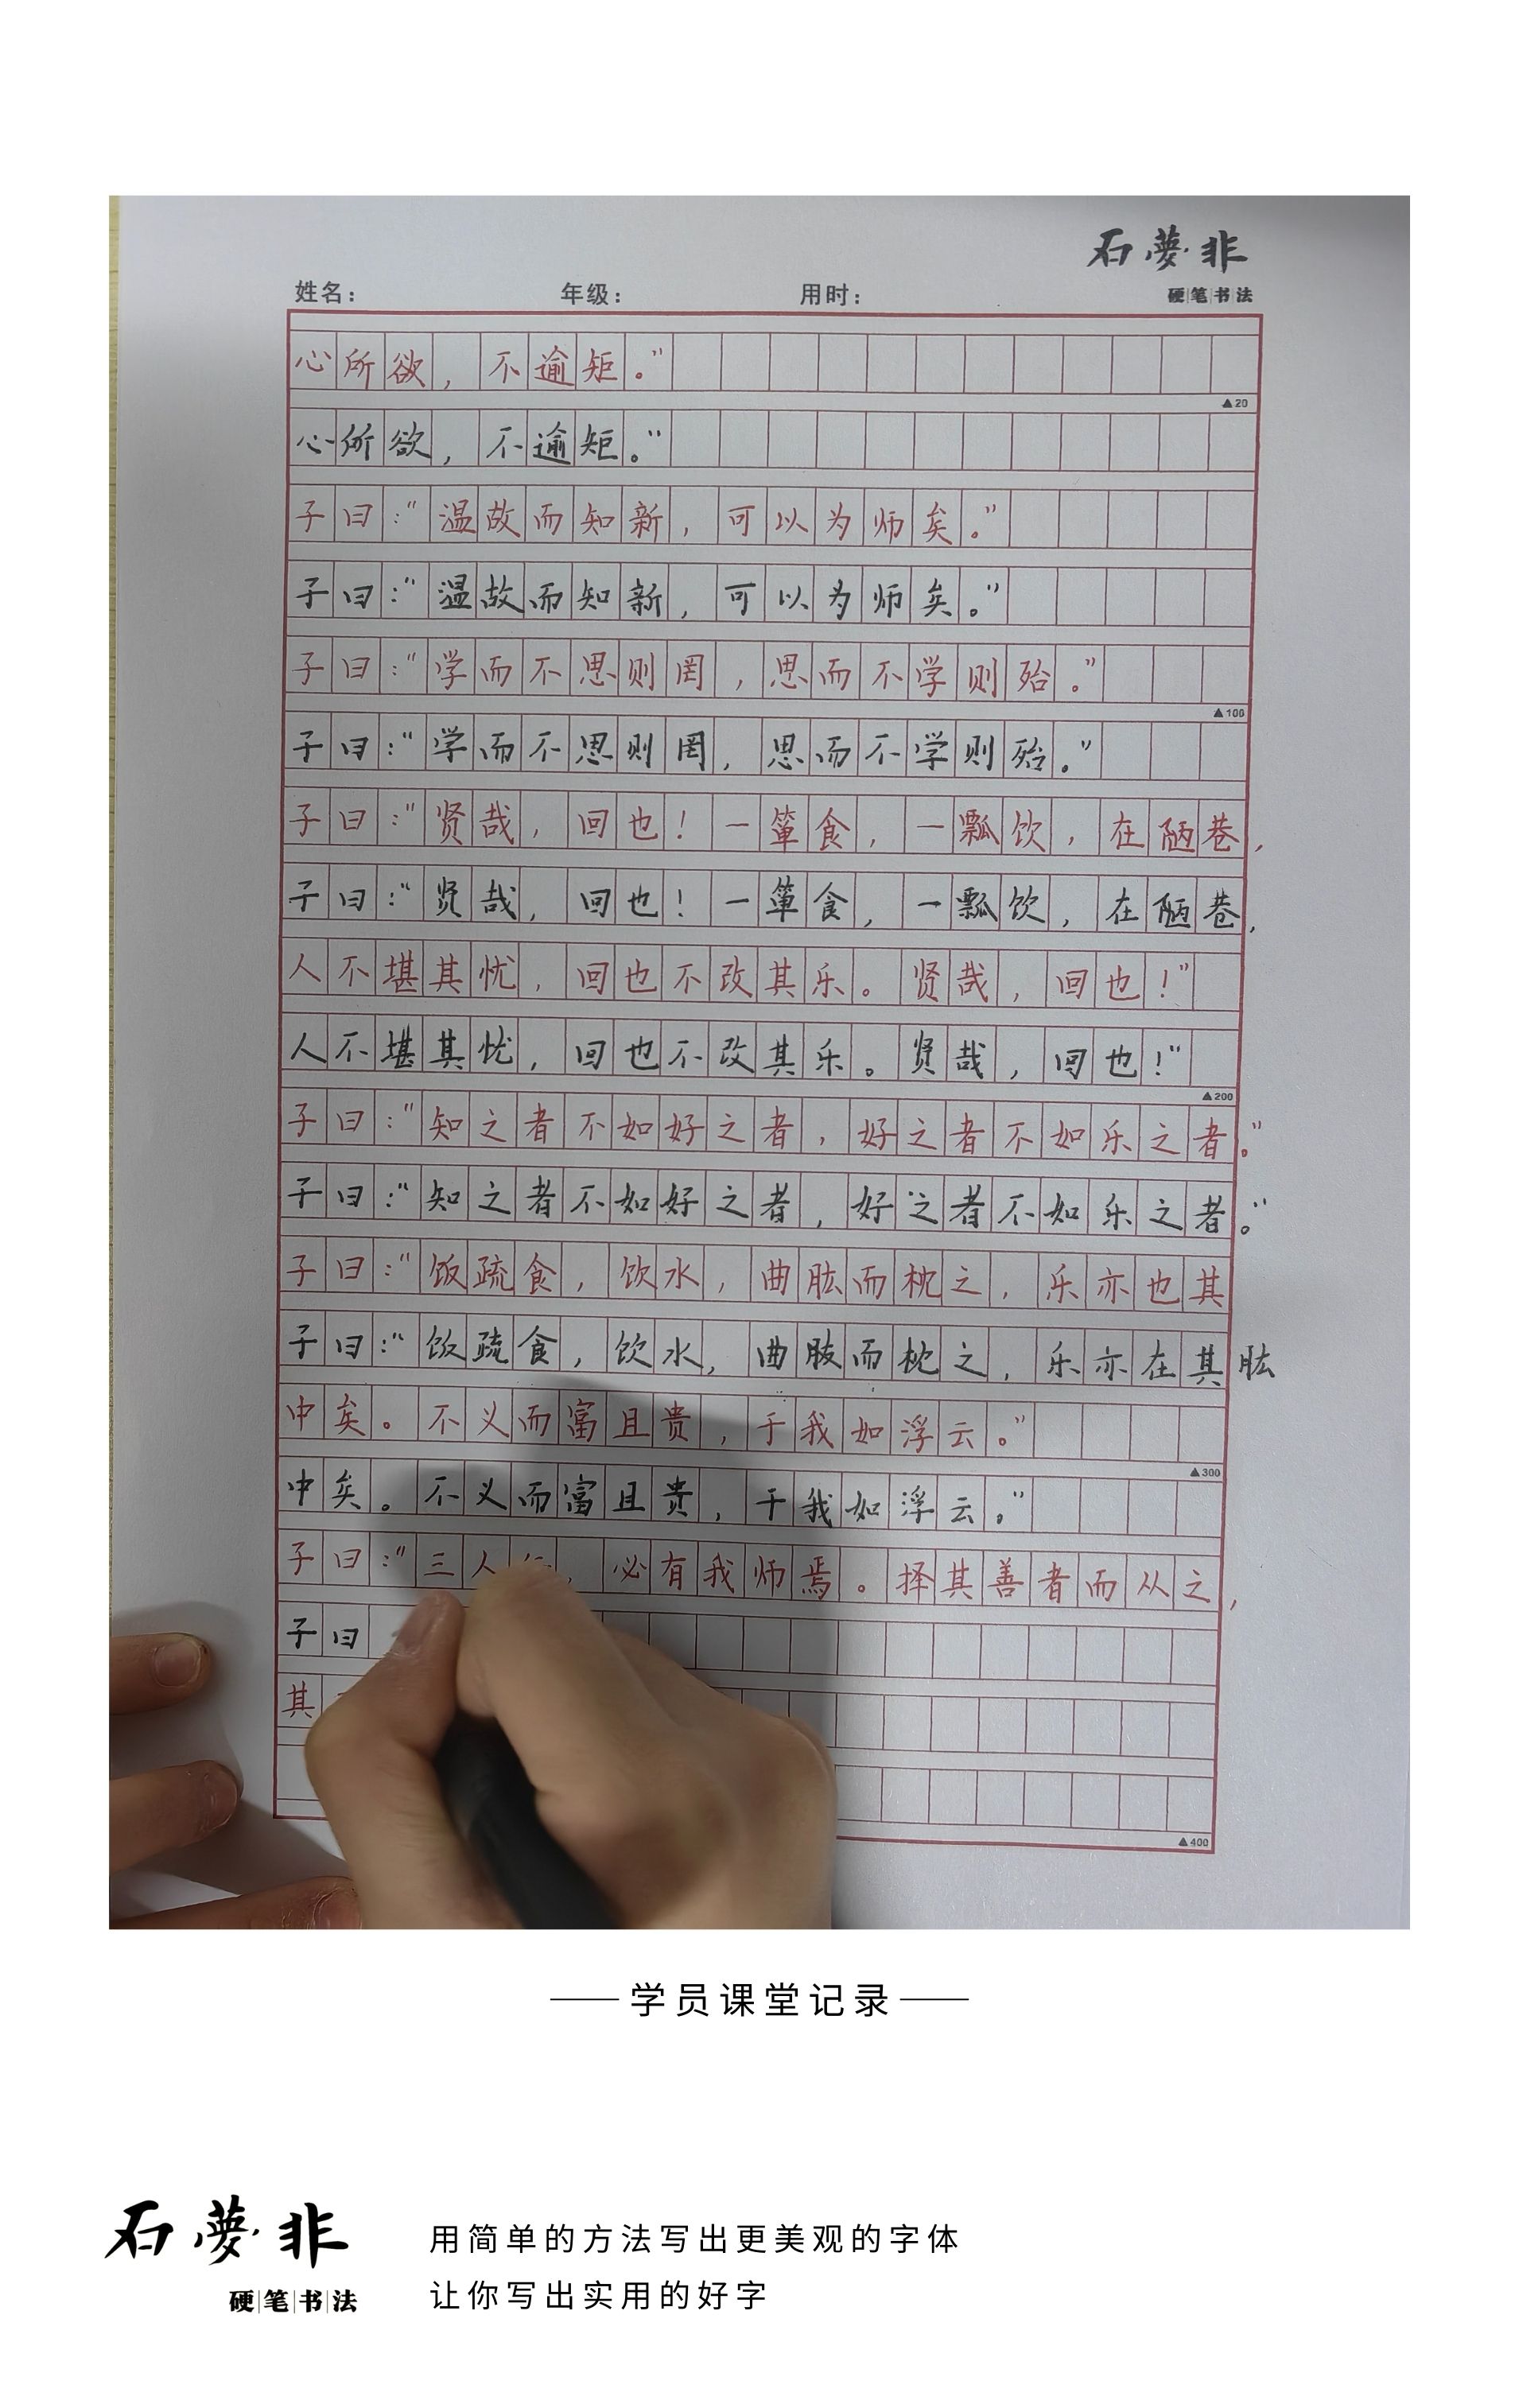 石夢非
姓名： 年级： 用时： 硬笔书法
心所欲，不逾矩。”
▲20
心所欲，不逾矩。”
子曰：“温故而知新，可以为师矣。”
子曰：“温故而知新，可以为师矣。”
子曰：“学而不思则罔，思而不学则殆。”
▲100
子曰：“学而不思则罔，思而不学则殆。”
子曰：“贤哉，回也！一箪食，一瓢饮，在陋巷，
子曰：“贤哉，回也！一箪食，一瓢饮，在陋巷，
人不堪其忧，回也不改其乐。贤哉，回也！”
人不堪其忧，回也不改其乐。贤哉，回也！”
▲200
子曰：“知之者不如好之者，好之者不如乐之者。”
子曰：“知之者不如好之者，好之者不如乐之者。”
子曰：“饭疏食，饮水，曲肱而枕之，乐亦也其
子曰：“饭疏食，饮水，曲肱而枕之，乐亦在其肱
中矣。不义而富且贵，于我如浮云。”
▲300
中矣。不义而富且贵，于我如浮云。”
子曰：“三人，必有我师焉。择其善者而从之，
子曰
其
▲400
学员课堂记录
石夢非
硬笔书法
用简单的方法写出更美观的字体
让你写出实用的好字